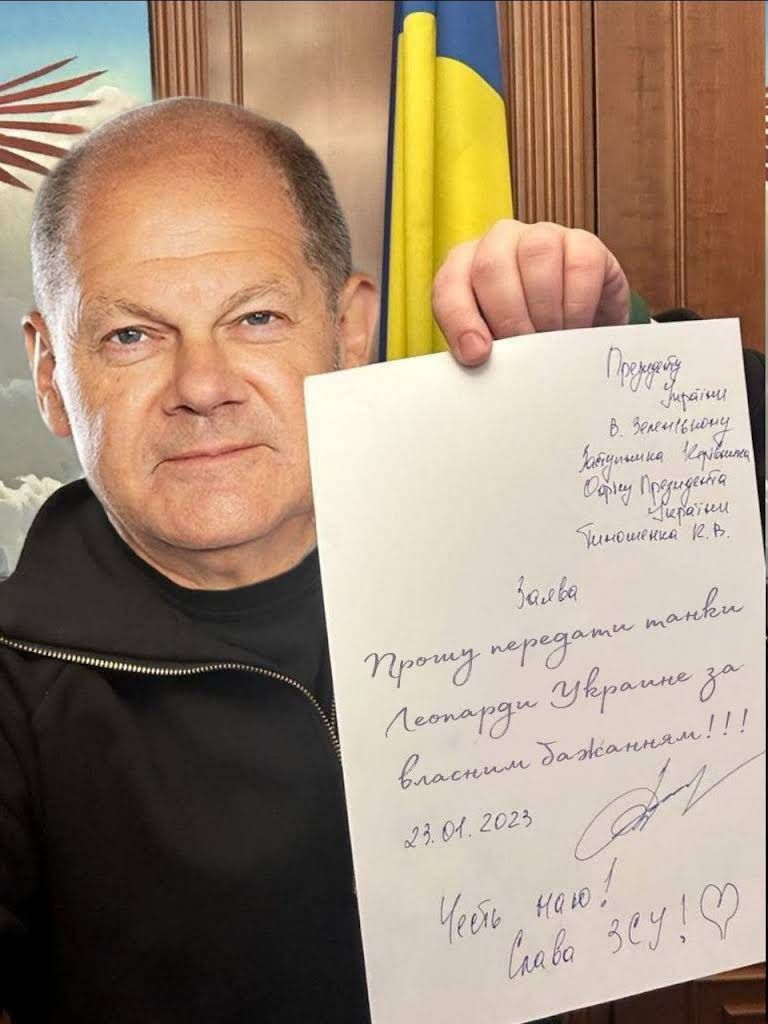 Президенту
України
В. Зеленському
Заступника Керівника
Офісу Президента
України
Тимошенка К.В.
Заява
Прошу передати танки
Леопарди Украине за
власним бажанням!!!
23.01.2023
Честь маю!
Слава ЗСУ!